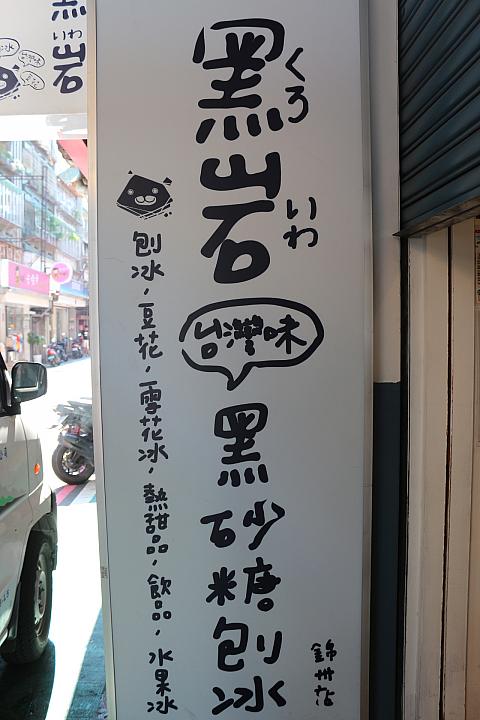 黑岩
くろ
いわ
台灣味
黑砂糖刨冰
刨冰，豆花，雪花冰，熱甜品，飲品，水果冰
錦州店
岩
いわ